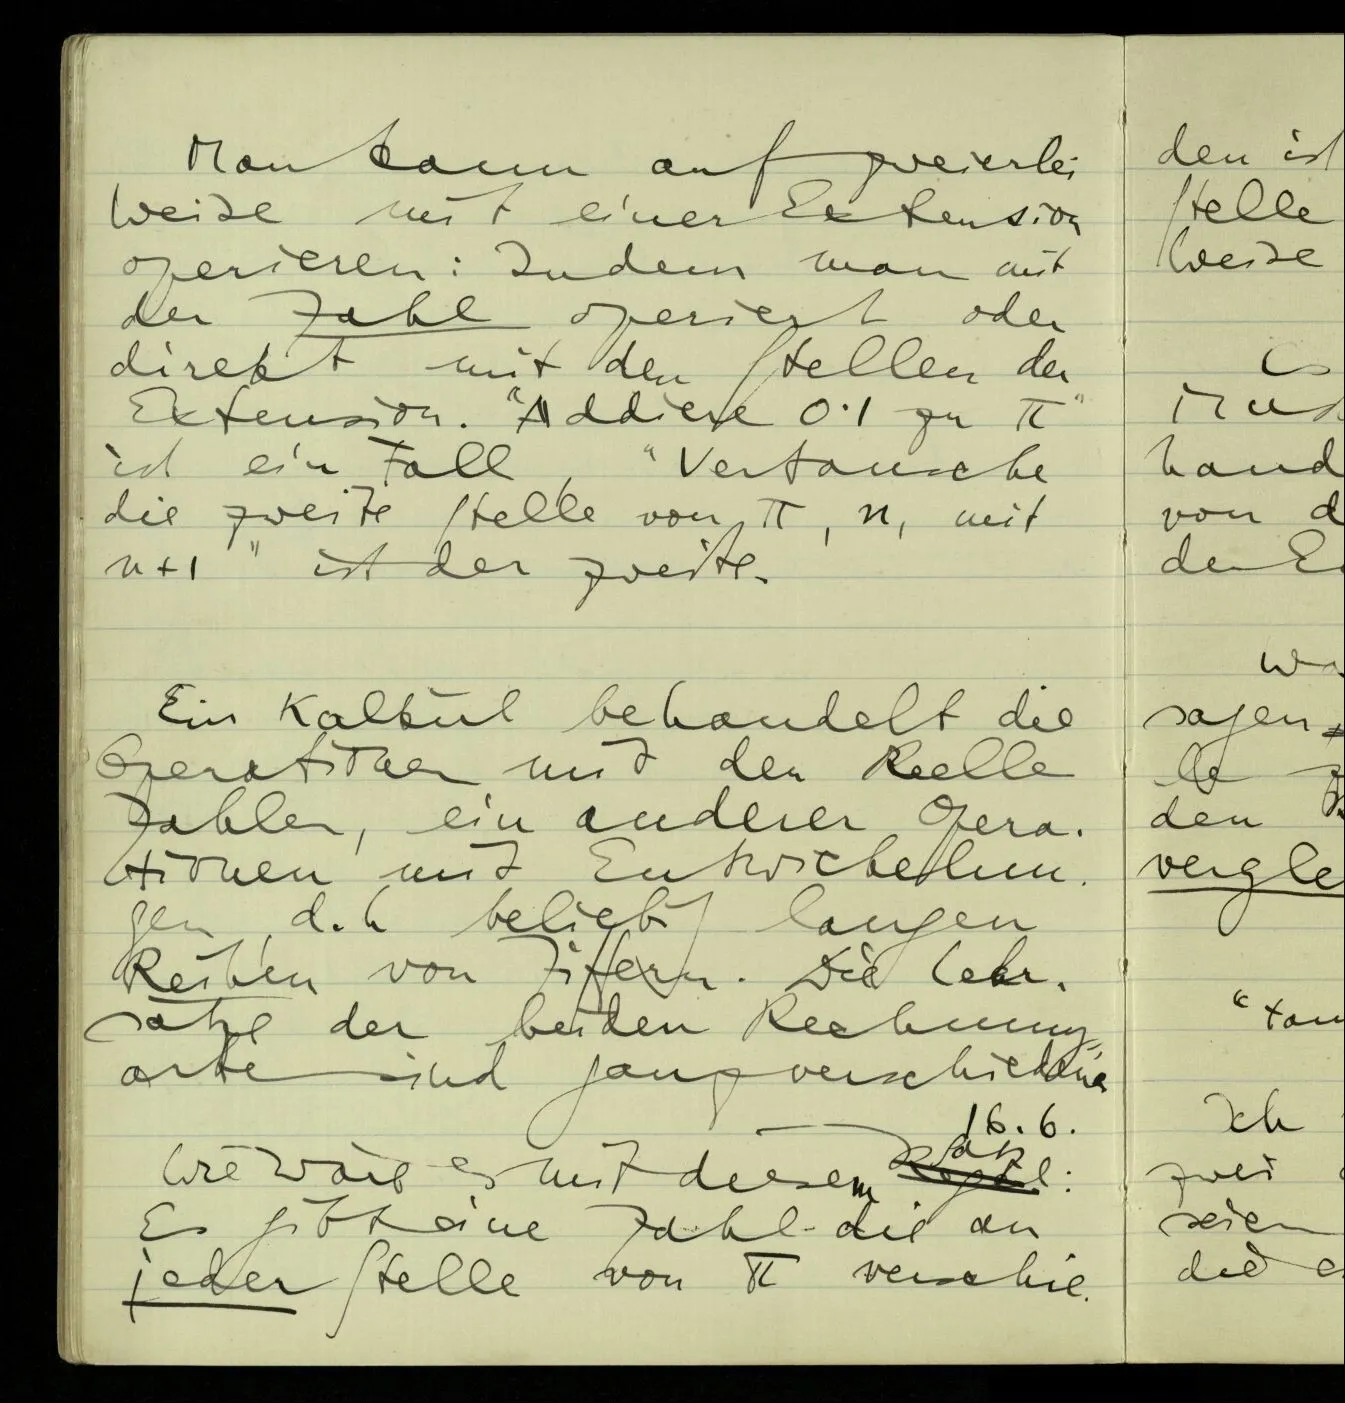 Man kann auf zweierlei
Weise mit einer Extension
operieren: Indem man mit
der Zahl operiert oder
direkt mit den Stellen der
Extension. "Addiere 0·1 zu π"
ist ein Fall, "Vertausche
die zweite Stelle von π, n, mit
n+1" ist der zweite.
Ein Kalkül behandelt die
Operationen mit den Reelle
Zahlen, ein anderer Opera-
tionen mit Entwickelun-
gen, d.h beliebig langen
Reihen von Ziffern. Die Lehr-
sätze der beiden Rechnung-
arten sind ganz verschieden
16.6.
Wie wäre es mit diesem Satz:
Es gibt eine Zahl die an
jeder Stelle von π verschie-
den ist
Stelle
Weise
hand
von d
den E
wa
sagen
den
vergle
"tau
Ich
zwei
seien
die e